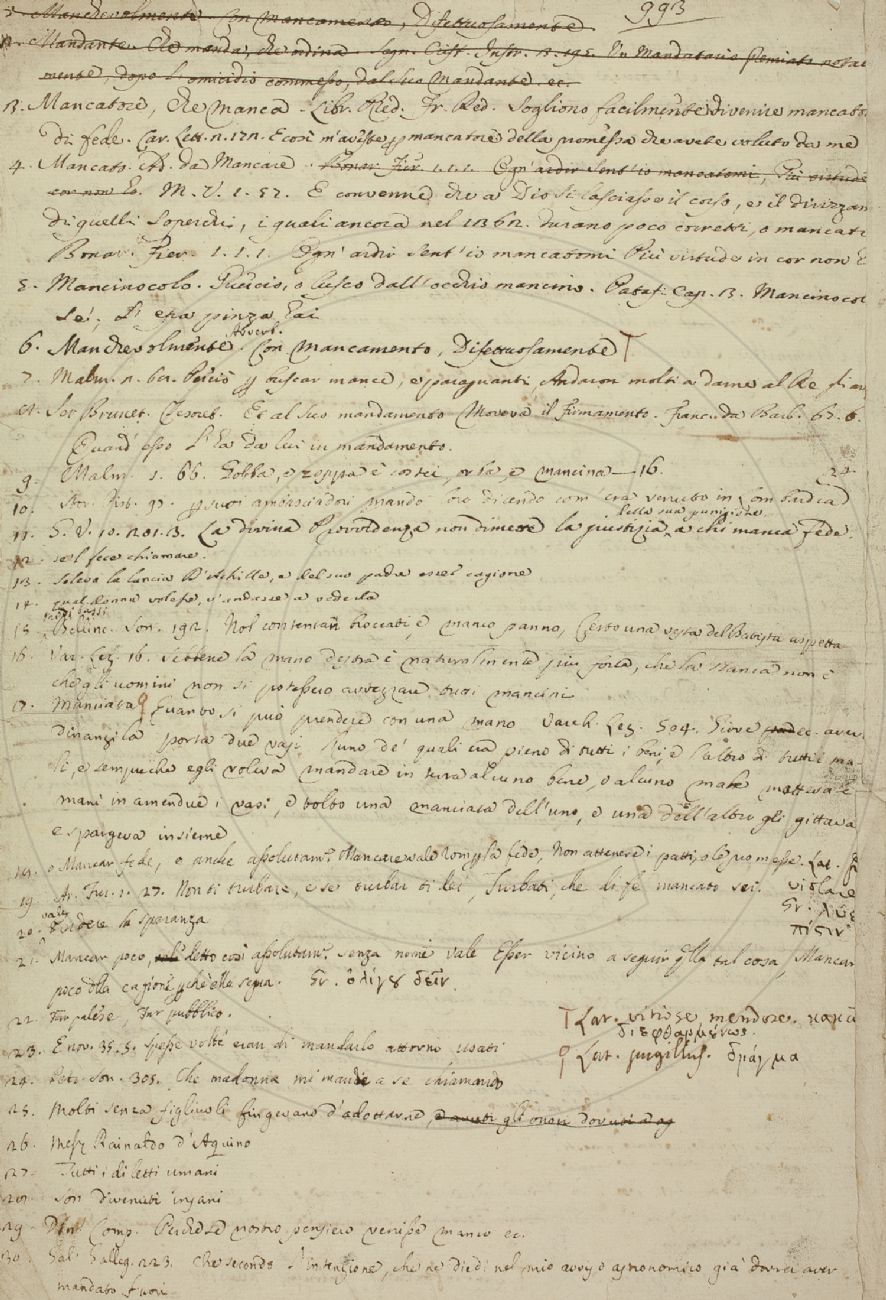 993
1. Manchevolmente. Con mancamento, Difettuosamente
2. Mandante. Che manda, che ordina. Segn. Crist. Instr.
mente, dopo l'omicidio commesso, dal suo Mandante. ec.
3. Mancatore, che manca. Libr. Red. Fr. Red. Sogliono facilmente divenire mancato
di fede. Car. Lett. E così m'aveste p mancatore della promessa che avete voluto da me
4. Mancato. Ad. da Mancare. Bonar. Fier. 1.1.1. Ogn'ardir sent'io mancatomi, Più virtude
cor non M. V. 1. 57. E convenne, che a Dio si lasciasse il corso, e il dirizzam
di quelli soperchi, i quali ancora nel durano poco corretti, o mancati
Bonar. Fier. 1. 1. 1. Ogn' ardir sent'io mancatomi Più virtude in cor non
5. Mancinocolo. Guercio, o lusco dall'occhio mancino. Pataff. Cap. 3. Mancinocol
se',
Adverb.
6. Manchevolmente. Con mancamento, Difettuosamente T
7. Malm. p buscar mance, e paraguanti, Andaron molti a darne al Re
8. Ser Brunet. Tesoret. Et al suo mandamento Moveva il firmamento. Franc. da Barb. 67. 6.
Quand'esso l'ha da lui in mandamento.
9. Malm. 1. 66. Gobba, e zoppa è costei, orba, e mancina — 16. 24
10. Stor. Pist. 97. p suoi ambasciadori mandò loro dicendo com era venuto in Lombardia
della sua punizione
11. G. V. 10. La divina Provvidenza non dimette la justizia, a chi manca fede.
12. sel fece chiamare.
13. Soleva la lancia D'Achille, e del suo padre esser cagione
14. qual donna volesse, s'andasse a vederla
15. Bellinc. Son. 192. Nol contentan broccati, e manco panno, Certo una vesta del Batista aspetta
16. Var. Lez. 16. Sebbene la mano destra è naturalmente più forte, che la stanca non è
che gli uomini non si potessero avvezzare tutti mancini
17. Manciata ♀ Quanto si può prendere con una mano Varch. Lez. 504. Giove ec. avev
dinanzi la porta due vasi, l'uno de' quali era pieno di tutti i beni, e l'altro di tutti i ma-
li, e sempre che egli voleva mandare in terra alcuno bene, o alcuno male metteva le
mani in amendue i vasi, e tolto una manciata dell'uno, e una dell'altro gli gittava
e spargeva insieme
18. o Mancar fede, o anche assolutam. Mancare vale romp la fede, Non attenere i patti, o le promesse. Lat. f
19. Ar. Fur. 1. 27. Non ti turbare, e se turbar ti dei, Turbati, che di fe mancato sei. violare
Gr. λύε
vale
20. Perdere la speranza πίστιν
21. Mancar poco, detto così assolutam. senza nome vale Esser vicino a seguir qlla tal cosa, Mancar
poco alla cagione pchè ella segua. Gr. ὀλίγου δεῖν.
22. Far palese, Far pubblico.
T Lat. vitiose, mendose. κακῶ
διεφθαρμένως.
23. E nov. 35.5. spesse volte eran di mandarlo attorno usati
♀ Lat. pugillus. δράγμα
24. Petr. son. 305. Che madonna mi mande a se chiamando
25. Molti senza figliuoli fingevano d'adottarne,
26. Mess. Rainaldo d'Aquino
27. Tutti i diletti umani
28. Son divenuti insani
29. Din. Comp. Perchè nostro pensiero venisse manco ec.
30. Gal. Galleg. 223. Che secondo l'intenzione, che ne diedi nel mio avviso astronomico già dovrei aver
mandato fuori